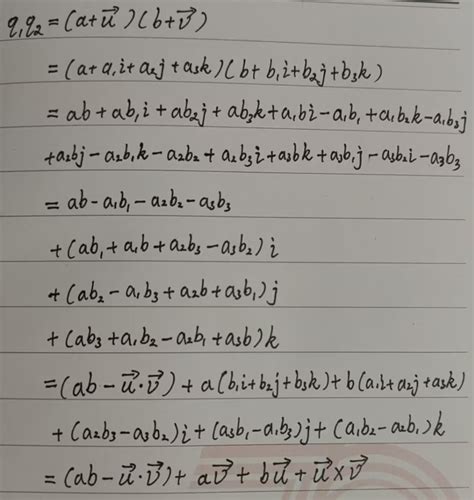 q₁q₂ = (a+u⃗)(b+v⃗)
= (a+a₁i+a₂j+a₃k)(b+b₁i+b₂j+b₃k)
= ab+ab₁i+ab₂j+ab₃k+a₁bi-a₁b₁+a₁b₂k-a₁b₃j
+a₂bj-a₂b₁k-a₂b₂+a₂b₃i+a₃bk+a₃b₁j-a₃b₂i-a₃b₃
= ab-a₁b₁-a₂b₂-a₃b₃
+(ab₁+a₁b+a₂b₃-a₃b₂)i
+(ab₂-a₁b₃+a₂b+a₃b₁)j
+(ab₃+a₁b₂-a₂b₁+a₃b)k
=(ab-u⃗·v⃗)+a(b₁i+b₂j+b₃k)+b(a₁i+a₂j+a₃k)
+(a₂b₃-a₃b₂)i+(a₃b₁-a₁b₃)j+(a₁b₂-a₂b₁)k
=(ab-u⃗·v⃗)+av⃗+bu⃗+u⃗×v⃗